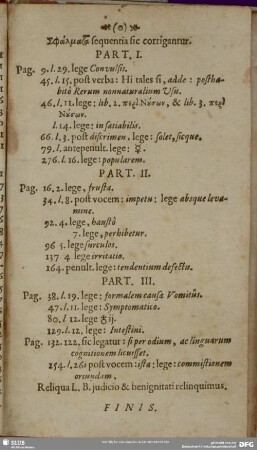 (o)
Σφάλματα sequentia sic corrigantur.
PART. I.
Pag. 9. l. 29. lege Convulsis.
45. l. 15. post verba: Hi tales si, adde: posthabitó
Rerum nonnaturalium Usu.
46. l. 11. lege: lib. 2. περὶ Νόσων, & lib. 3. περὶ
Νόσων.
l. 14. lege: insatiabilis.
66. l. 3. post discrimen, lege: solet, sicque.
79. l. antepenult. lege: ☿.
276. l. 16. lege: popularem.
PART. II.
Pag. 16. 2. lege, frusta.
34. l. 8. post vocem: impetu: lege absque levamine.
92. 4. lege, haustô
7. lege, perhibetur.
96 5. lege surculos.
137 4 lege irritatio.
164. penult. lege: tendentium defectu.
PART. III.
Pag. 38. l. 19. lege: formalem causæ Vomitûs.
47. l. 11. lege: Symptomatico.
80. l. 12. lege: ʒij.
129. l. 12. lege: Intestini.
Pag. 132. 122. sic legatur: si per odium, ac linguarum
cognitionem licuisset.
254. l. 26i post vocem: ista: lege: commistionem
oriundam.
Reliqua L. B. judicio & benignitati relinquimus.
FINIS.
SLUB
DFG